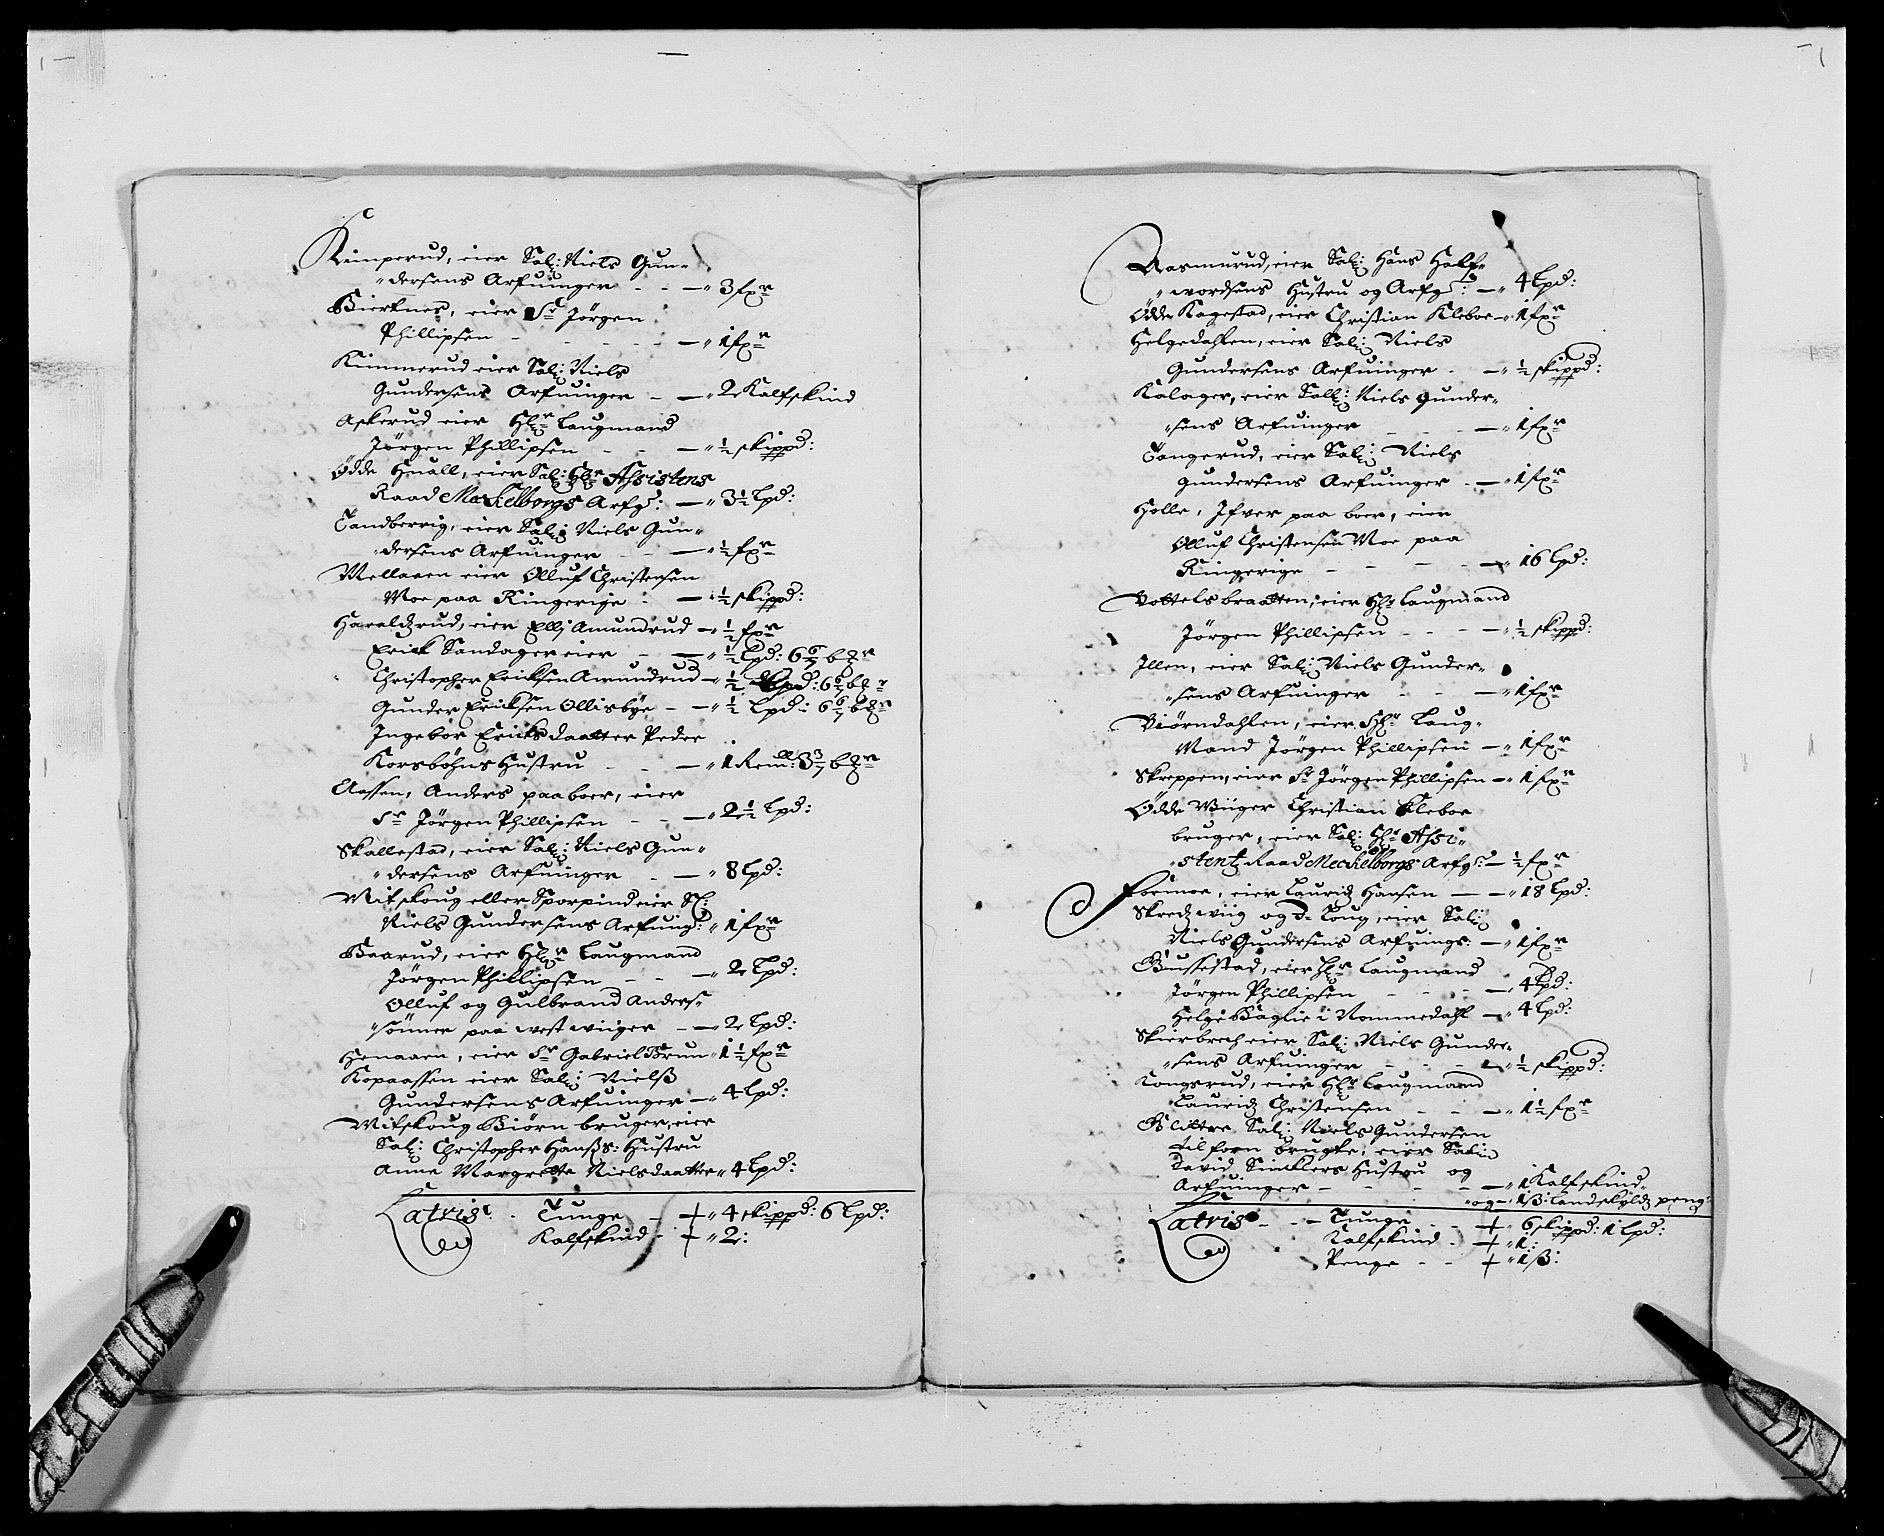 Kimperud, eier Sal: Niels Gun-
dersens Arfuinger - - — 3 fxr
Bierknes, eier Sr Jörgen
Phillipsen - - - — 1 fxr
Kimmerud eier Sal: Niels
Gundersens Arfuinger - — 2 Kalfskind
Askerud eier Hlr Laugmand
Jörgen Phillipsen - - — ½ skippd:
Ödde Huall, eier Sal: Hlr Assistens
Raad Meckelborgs Arfg: — 3½ Lpd:
Tandberrig, eier Sal: Niels Gun-
dersens Arfuinger - — ½ fxr
Mellaaen eier Olluf Christensen
Moe paa Ringerige - — ½ skippd:
Haraldzrud, eier Ellj Amundrud — ½ fxr
Erick Sandager eier - — ½ Lpd: 6 6/7 bzr
Christopher Ericksen Amundrud — ½ Lpd: 6 6/7 bzr
Gunder Ericksen Ollisbye - — ½ Lpd: 6 6/7 bzr
Ingebor Ericksdaatter Peder
Korsböhns Hustru - - — 1 Reml: 3 3/7 bzr
Aassen, Anders paaboer, eier
Sr Jörgen Phillipsen - - — 2½ Lpd:
Skallestad, eier Sal: Niels Gun-
dersens Arfuinger - — 8 Lpd:
Mitskoug eller Sporpind eier Sl:
Niels Gundersens Arfuing: 1 fxr
Baarud, eier Hlr Laugmand
Jörgen Phillipsen - - — 2 Lpd:
Olluf og Gulbrand Anders-
sönner paa west wiiger - — 2 Lpd:
Henaaen, eier Sr Gabriel Brun 1½ fxr
Kopaassen eier Sal: Nielss
Gundersens Arfuinger — 4 Lpd:
Mitskoug Biörn bruger, eier
Sal: Christopher Hanss: Hustru
Anne Margrette Nielsdaatter 4 Lpd:
Latris - Tunge - + 4 skippd: 6 Lpd:
Kalfskind - + 2:
Aasmurud, eier Sal: Hans Half-
wordsens Hustru og Arfg: — 4 Lpd:
Ödde Kagestad, eier Christian Kleboe — 1 fxr
Helgedahlen, eier Sal: Niels
Gundersens Arfuinger - — ½ skippd:
Kalager, eier Sall: Niels Gunder-
sens Arfuinger - - — 1 fxr
Tangerud, eier Sal: Niels
Gundersens Arfuinger - — 1 fxr
Holle, Ifver paa boer, eier
Olluf Christensen Moe paa
Ringerige - - - — 16 Lpd:
Bottelsbraatten, eier Hlr Laugmand
Jörgen Phillipsen - - — ½ skippd:
Illen, eier Sal: Niels Gunder-
sens Arfuinger - - — 1 fxr
Biörndahlen, eier Hlr Laug-
Mand Jörgen Phillipsen — 1 fxr
Skreppen, eier Sr Jörgen Phillipsen — 1 fxr
Ödde Wiiger Christian Kleboe
bruger, eier Sal: Hlr Assi-
stentz Raad Meckelborgs Arfg: — ½ fxr
Formoe, eier Lauridz Hansen — 18 Lpd:
Skredzwiig og de Loug, eier Sal:
Niels Gundersens Arfuings: — 1 fxr
Bussestad, eier Hlr Laugmand
Jörgen Phillipsen - - — 4 Lpd:
Helge Baglie i Nommedahl — 4 Lpd:
Skierbrech eier Sal: Niels Gunder-
sens Arfuinger - - — ½ skippd:
Kongsrud, eier Hlr Laugmand
Lauridz Christensen - - — 1½ fxr
Glittre Sal: Niels Gundersen
tilforn brugte, eier Sal:
David Sincklers Hustru og
Arfuinger - - - — 1 Kalfskind
og — 1 ß: Landskyldz peng:
Latris - - Tunge - - + 6 skippd: 1 Lpd:
Kalfskind - + 1:
Penge - - + 1 ß: